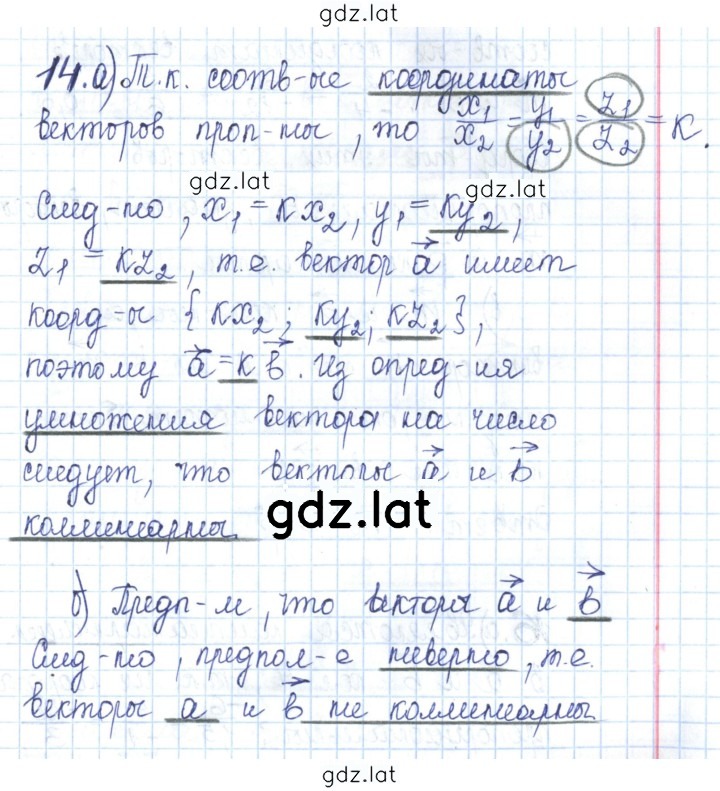 gdz.lat
14.а) Т.к. соотв-ые координаты
векторов проп-ны, то x₁/x₂ = y₁/y₂ = z₁/z₂ = к.
gdz.lat
След-но, x₁ = кx₂, y₁ = кy₂,
z₁ = кz₂, т.е. вектор a⃗ имеет
коорд-ы {кx₂; кy₂; кz₂},
поэтому a⃗ = к b⃗. Из опред-ия
умножения вектора на число
следует, что векторы a⃗ и b⃗
коллинеарны
gdz.lat
б) Предп-м, что векторы a⃗ и b⃗
След-но, предпол-е неверно, т.е.
векторы a и b⃗ не коллинеарны
gdz.lat